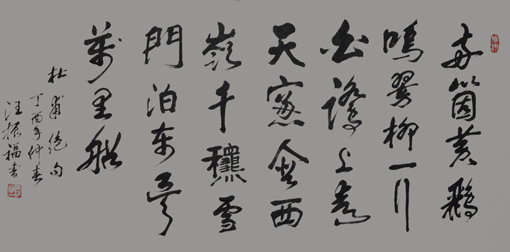 两箇黄鹂
鸣翠柳一行
白鹭上青
天窗含西
嶺千龝雪
門泊东吴
萬里船
杜甫绝句
丁酉年仲春
汪振福书